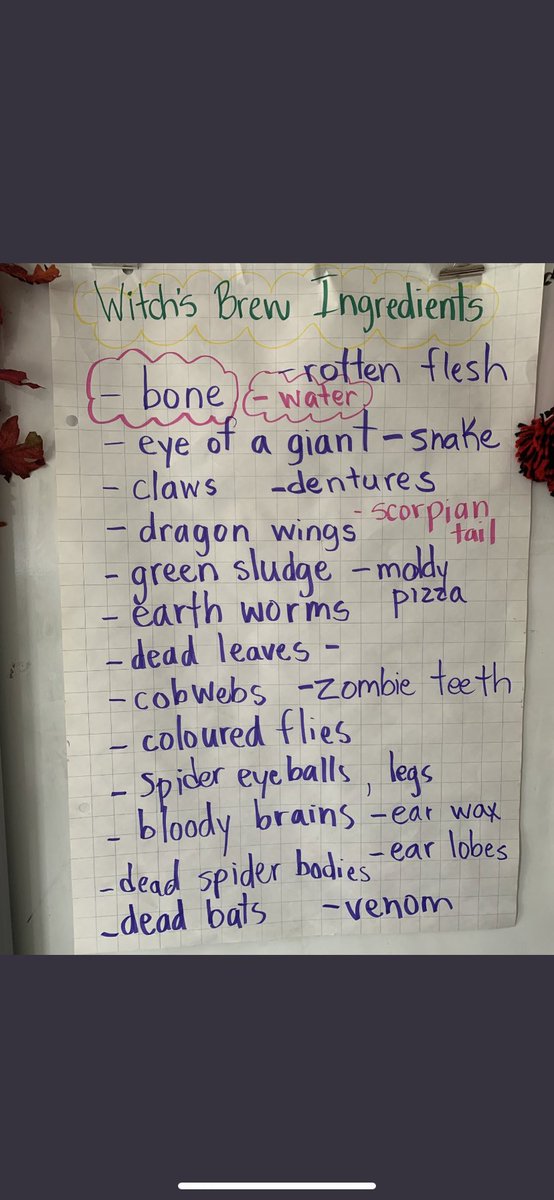 Witch's Brew Ingredients
- rotten flesh
- bone - water
- eye of a giant - snake
- claws - dentures
- scorpian
- dragon wings tail
- green sludge - moldy
- earth worms pizza
- dead leaves -
- cobwebs - zombie teeth
- coloured flies
- spider eyeballs, legs
- bloody brains - ear wax
- ear lobes
- dead spider bodies
- dead bats - venom